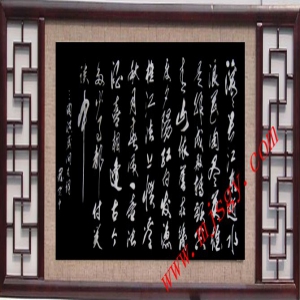 滚滚长江东逝水
浪花淘尽英雄
是非成败转头空
青山依旧在几
度夕阳红白发渔
樵江渚上惯看
秋月春风一壶浊
酒喜相逢古今
多少事都付笑
谈中